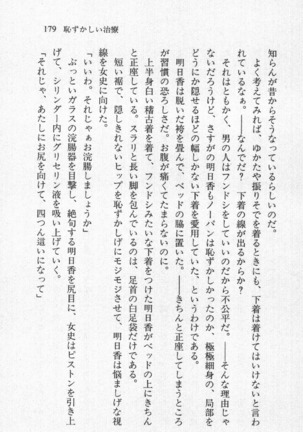 179　恥ずかしい治療
知らんが昔からそうなっているらしいのだ。
　よく考えてみれば、ゆかたや振りそでを着るときにも、下着は着けてはいけないと言わ
れているなぁ。――なんでだ？　下着の線が出るからか？
　それはともかく、男の人はフンドシをしていいのだから不公平だ。――そんな理由じゃ
ないだろうけど、さすがの明日香もノーパンは恥ずかしかったのか、極極細身の、局部を
どうにか隠せるほどの幅しかない下着を愛用していた、というわけである。
　明日香は脱いだ袴を畳んで、ベッドの脇に置いた。――きちんと正座してしまうところ
が習慣の恐ろしさだ。お腹が痛くてたまらないのに。
　上半身白い稽古着を着て、フンドシみたいな下着をつけた明日香がベッドの上にきちん
と正座している。スラリと長い脚を包んでいるのは、足首の白足袋だけである。
　短い裾で、隠しきれないヒップを恥ずかしげにモジモジさせて、明日香は悩ましげな視
線を女史に向けた。
「いいわ。それじゃぁお浣腸しましょうか」
　ぶっといガラスの浣腸器を目撃し、絶句する明日香を尻目に、女史はピストンを引き上
げて、シリンダー内にグリセリン液を吸い上げていく。
「それじゃ、あたしにお尻を向けて、四つん這いになって」